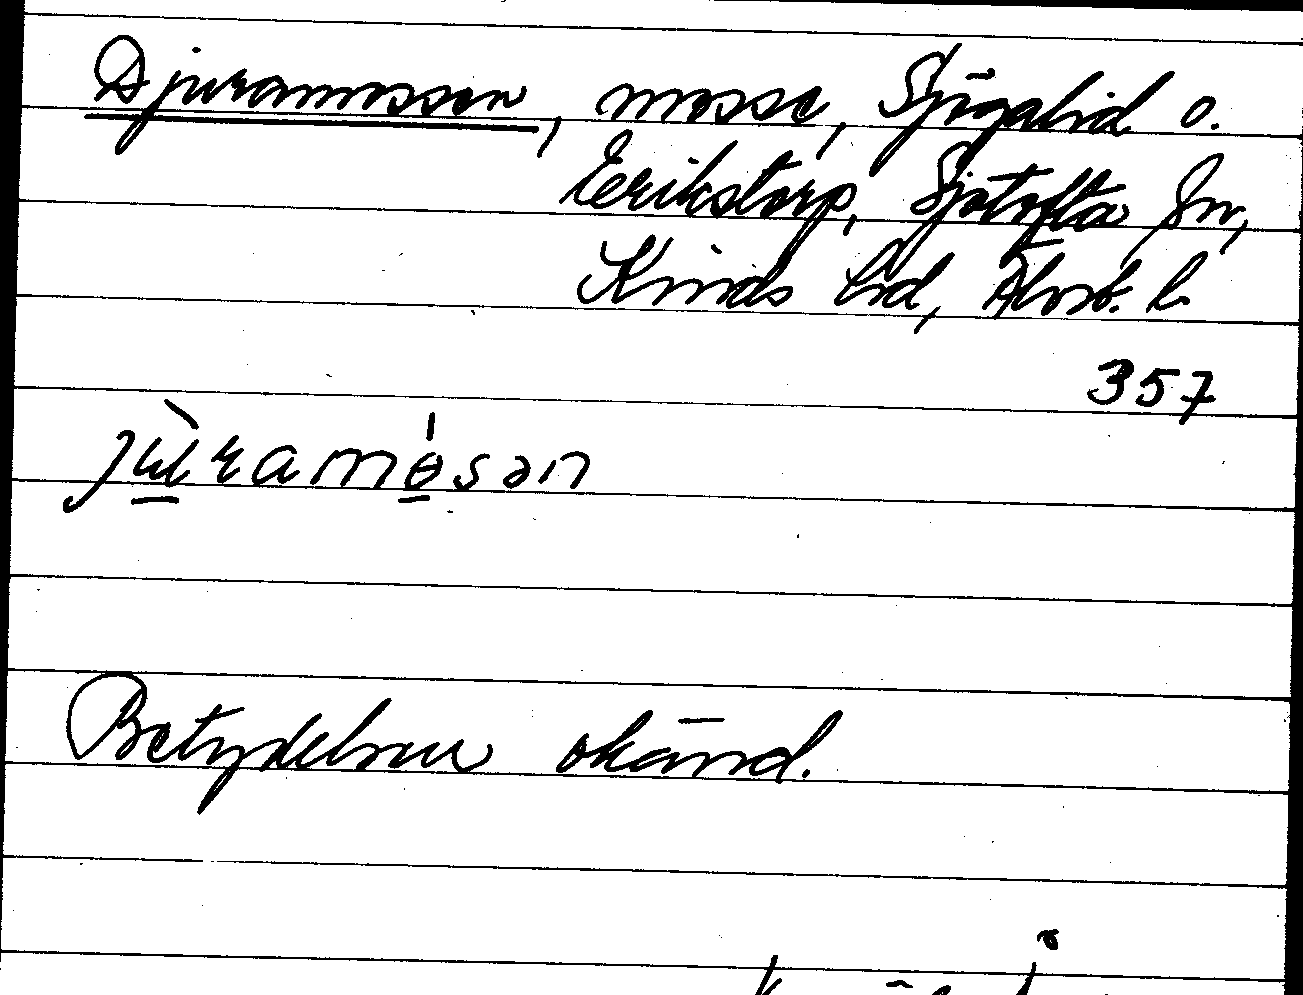 Djuramossen, mosse, Sjögalid o.
Erikstorp, Sjötofta sn,
Kinds hd, Älvsb. l.
357
jùramósən
Betydelsen okänd.